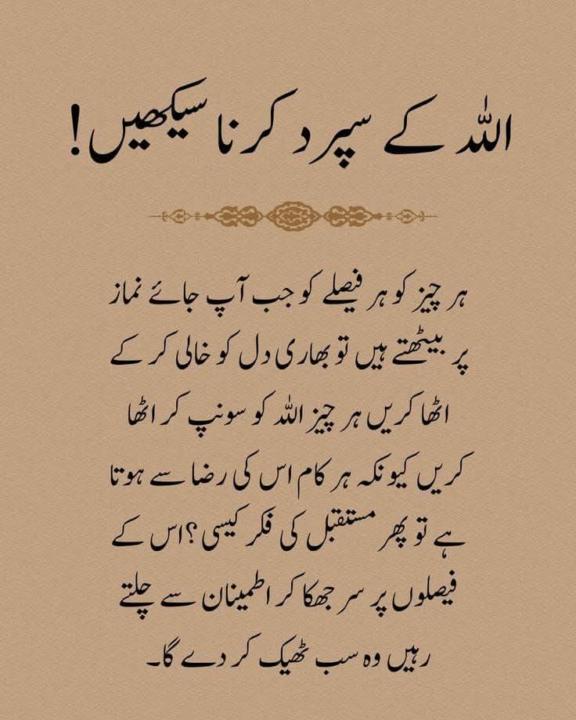 اللہ کے سپرد کرنا سیکھیں!
ہر چیز کو ہر فیصلے کو جب آپ جائے نماز
پر بیٹھتے ہیں تو بھاری دل کو خالی کر کے
اٹھا کریں ہر چیز اللہ کو سونپ کر اٹھا
کریں کیونکہ ہر کام اس کی رضا سے ہوتا
ہے تو پھر مستقبل کی فکر کیسی؟ اس کے
فیصلوں پر سر جھکا کر اطمینان سے چلتے
رہیں وہ سب ٹھیک کر دے گا۔